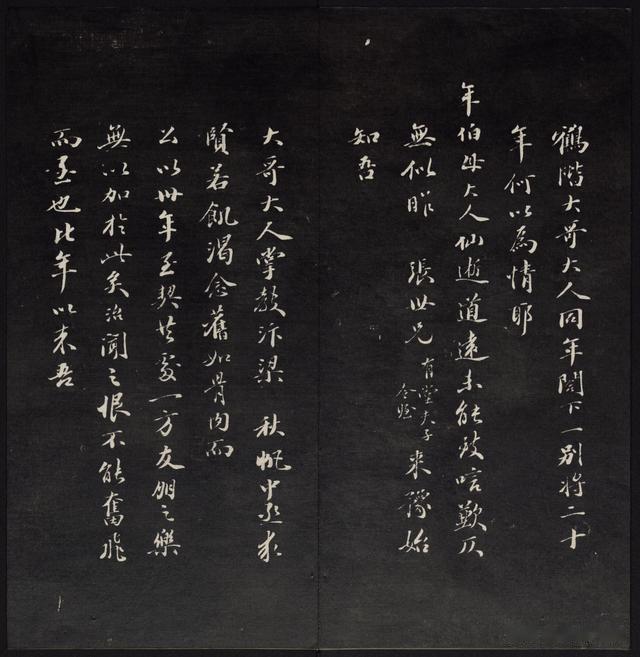 鶴階大哥大人同年閣下一別將二十
年何以為情耶
年伯母大人仙逝道遠未能致唁歉仄
無似昨 張世兄 有堂夫子令 來豫始
知吾
大哥大人掌教汴梁 秋帆中丞求
賢若飢渴念舊如骨肉而
公以卅年至契共處一方友朋之樂
無以加於此矣聞之恨不能奮飛
而至也比年以來吾